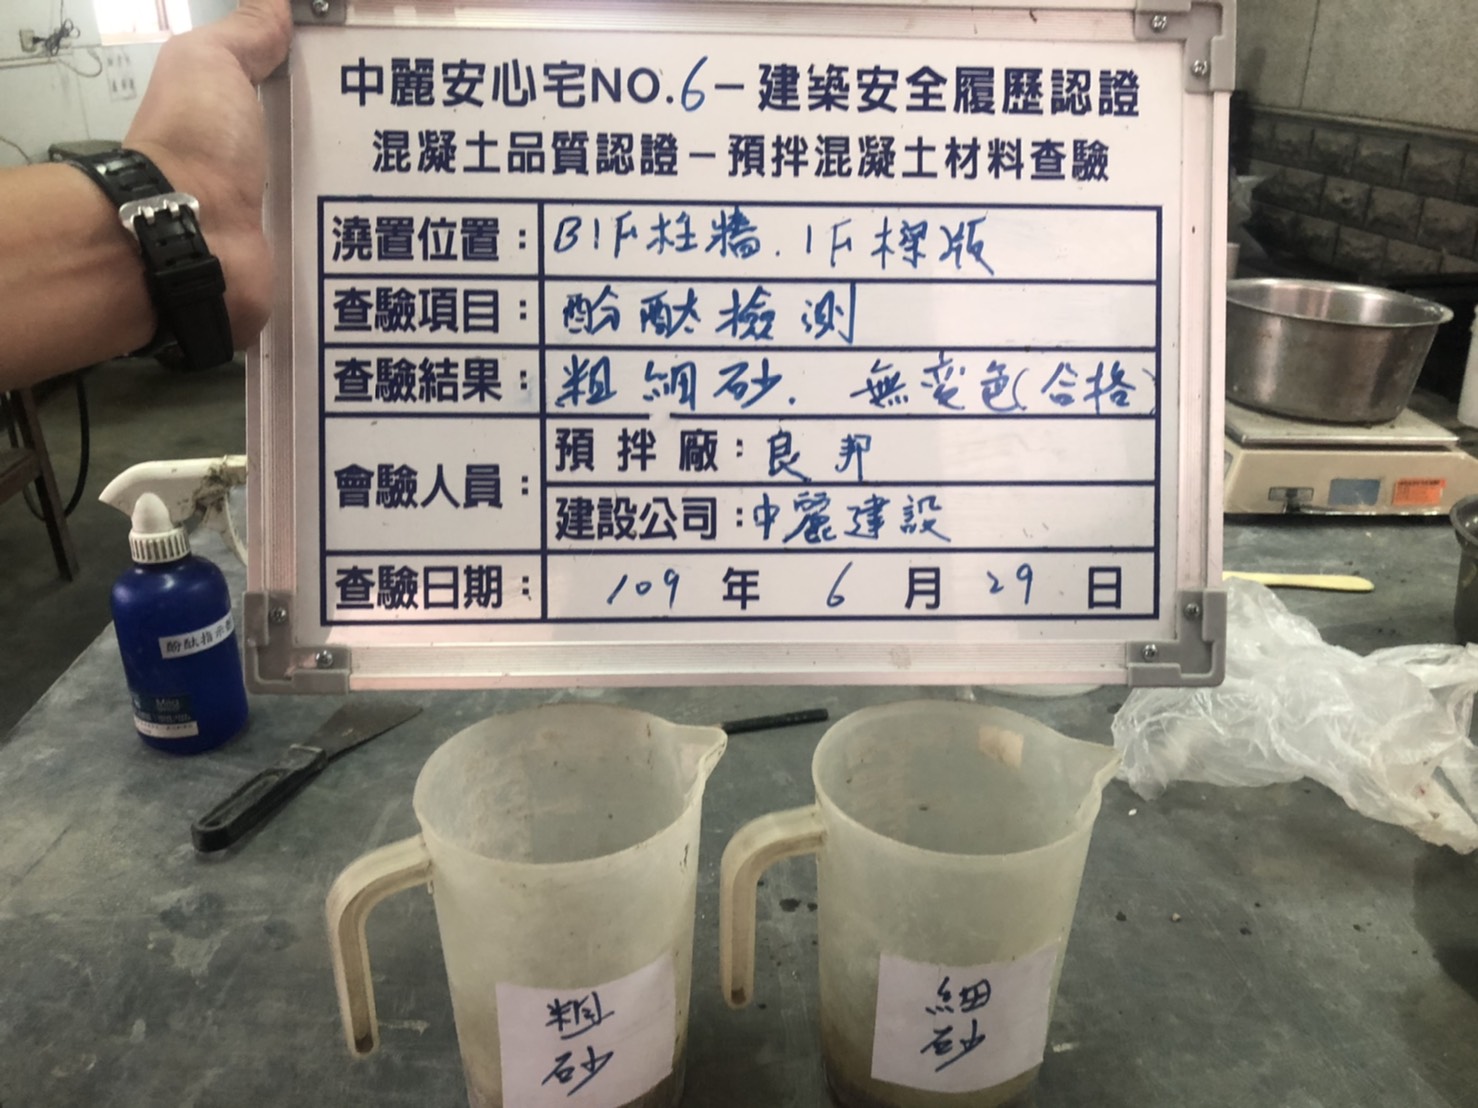 中麗安心宅NO.6－建築安全履歷認證
混凝土品質認證－預拌混凝土材料查驗
澆置位置：B1F柱牆．1F樑版
查驗項目：酚酞檢測
查驗結果：粗細砂．無变色(合格)
會驗人員：
預拌廠：良邦
建設公司：中麗建設
查驗日期：109年6月29日
酚酞指示劑
粗砂
細砂